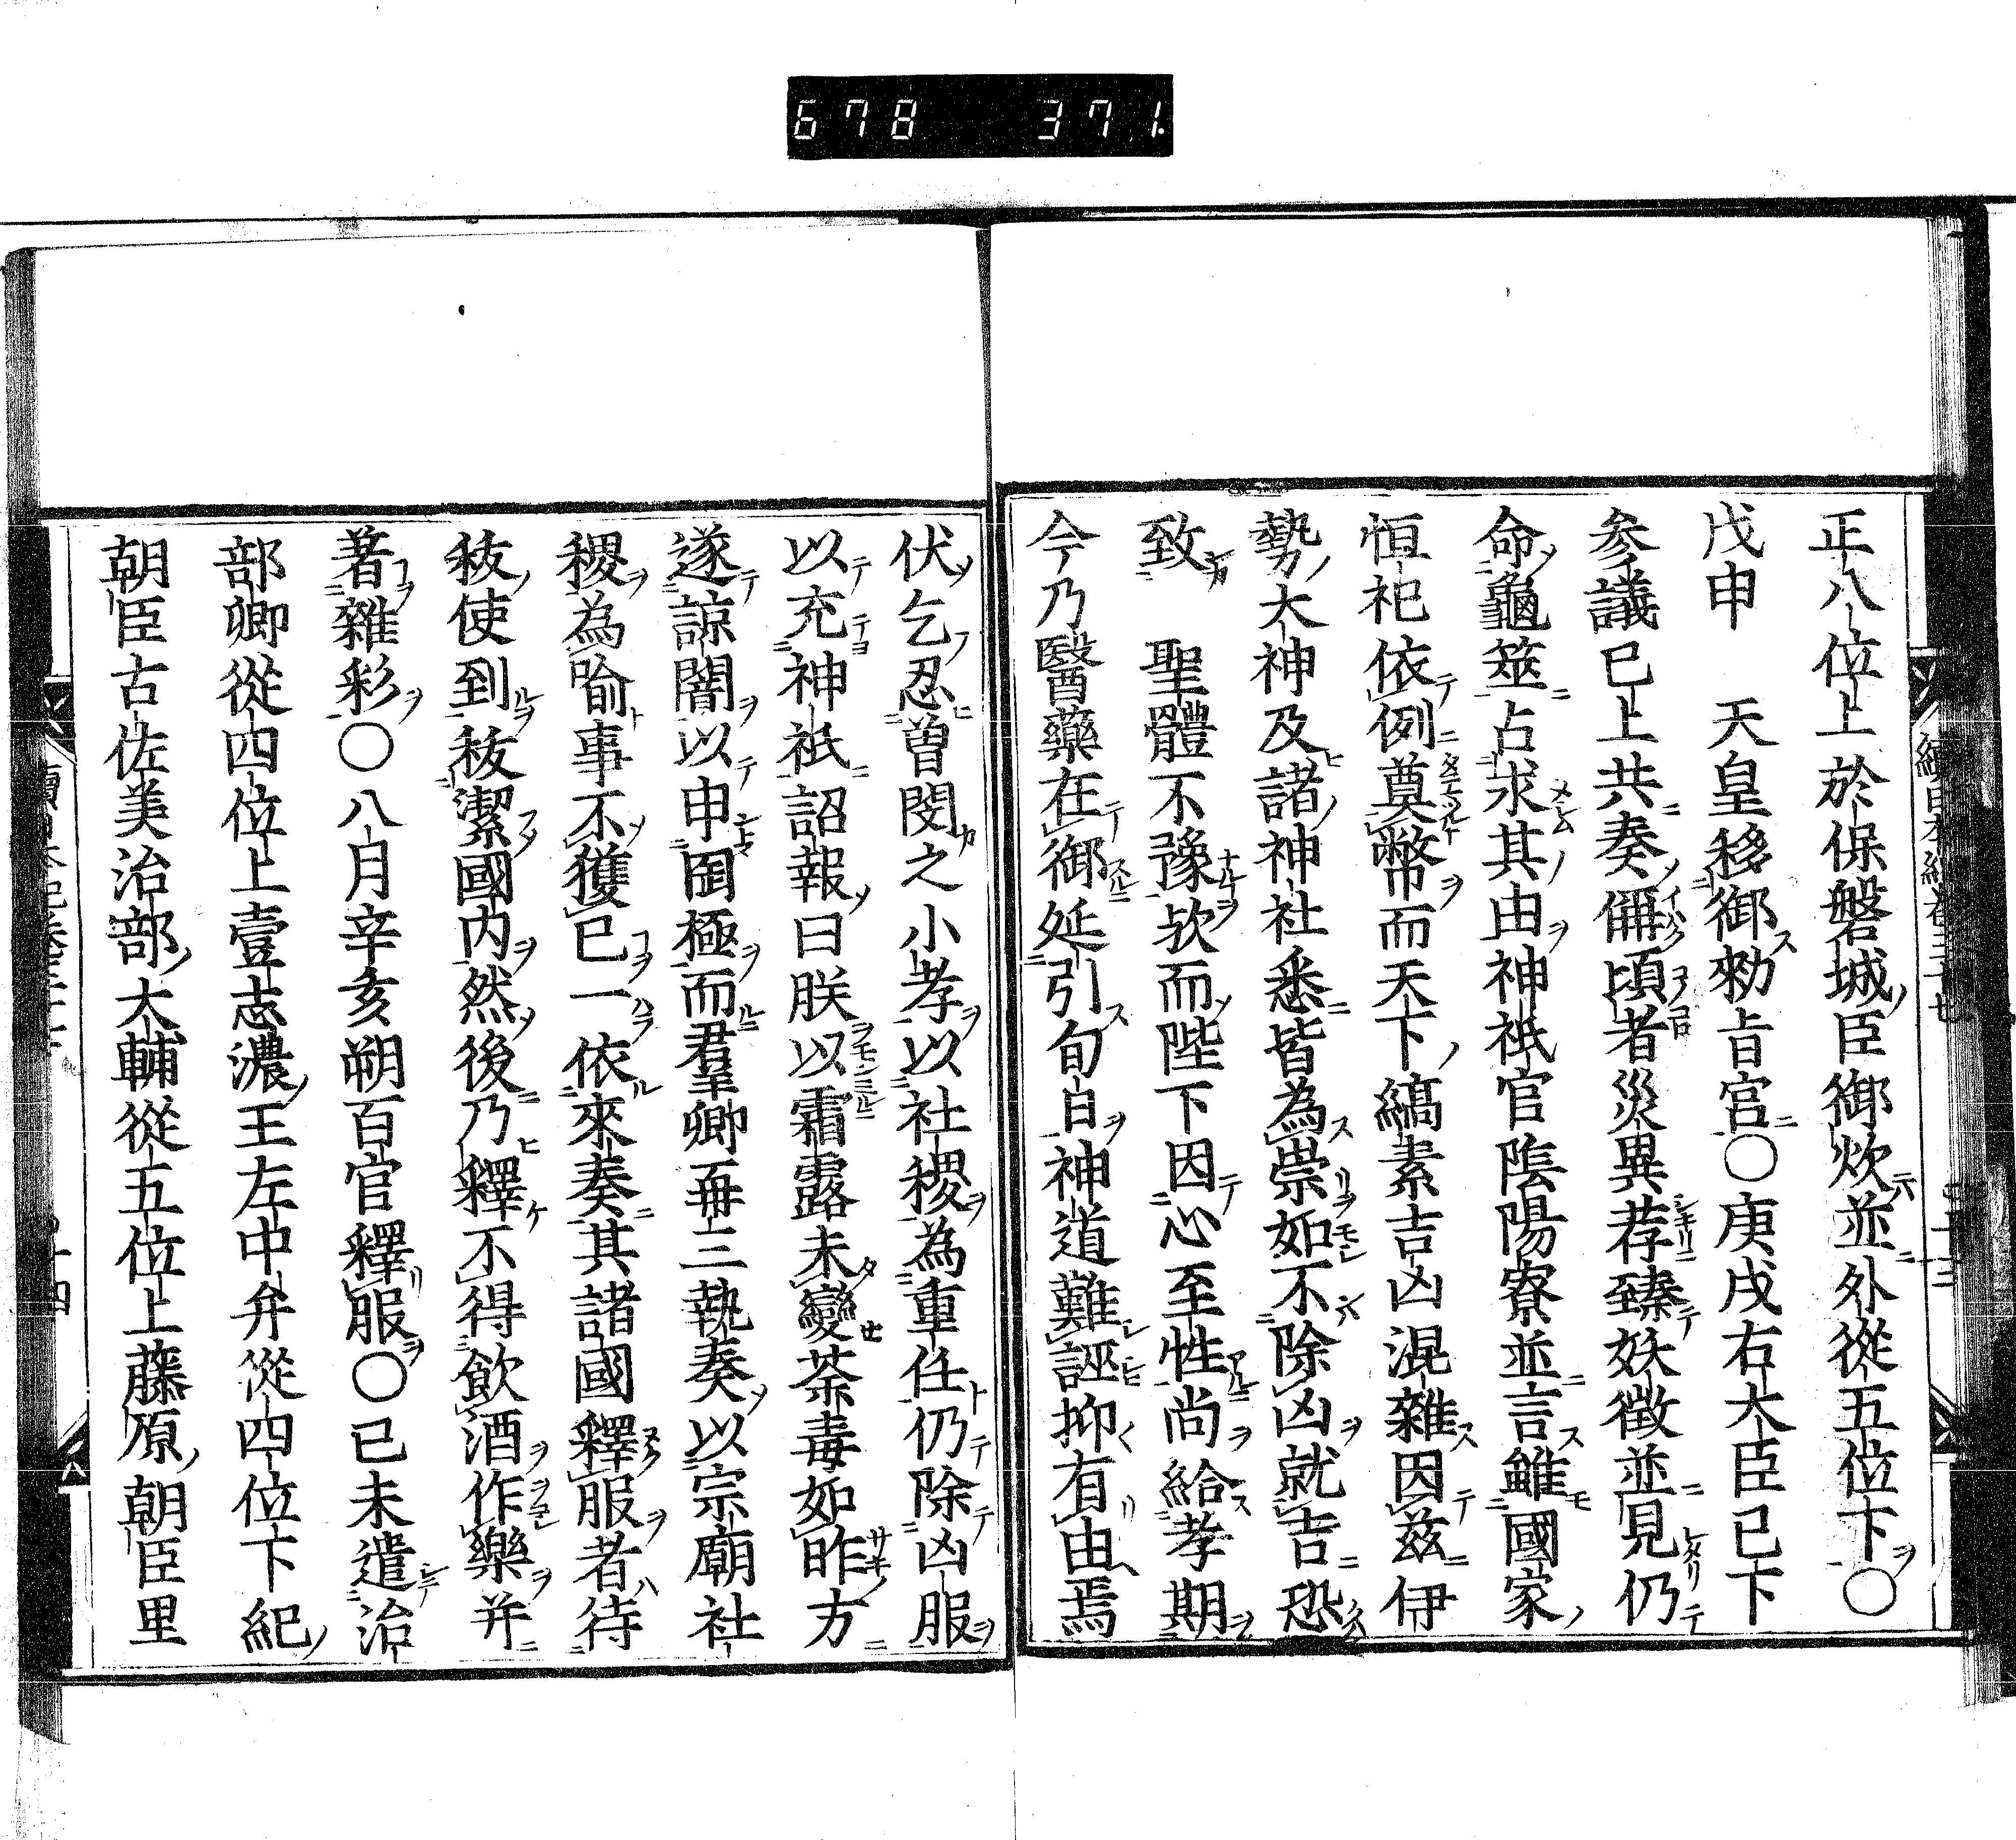 678 371.
正八位上於保磐城臣御炊並外從五位下〇
戊申　天皇移御勅旨宮〇庚戌右大臣已下
參議已上共奏偁頃者災異荐臻妖徵並見仍
命龜筮占求其由神祇官陰陽寮並言雖國家
恒祀依例奠幣而天下縞素吉凶混雜因茲伊
勢大神及諸神社悉皆為祟如不除凶就吉恐
致　聖體不豫歟而陛下因心至性尚給孝期
今乃醫藥在御延引旬日神道難誣抑有由焉
伏乞忍曾閔之小孝以社稷為重任仍除凶服
以充神祇詔報曰朕以霜露未變荼毒如昨方
遂諒闇以申罔極而羣卿再三執奏以宗廟社
稷為喻事不獲已一依來奏其諸國釋服者待
秡使到秡潔國內然後乃釋不得飲酒作樂并
著雜彩〇八月辛亥朔百官釋服〇己未遣治
部卿從四位上壹志濃王左中弁從四位下紀
朝臣古佐美治部大輔從五位上藤原朝臣里